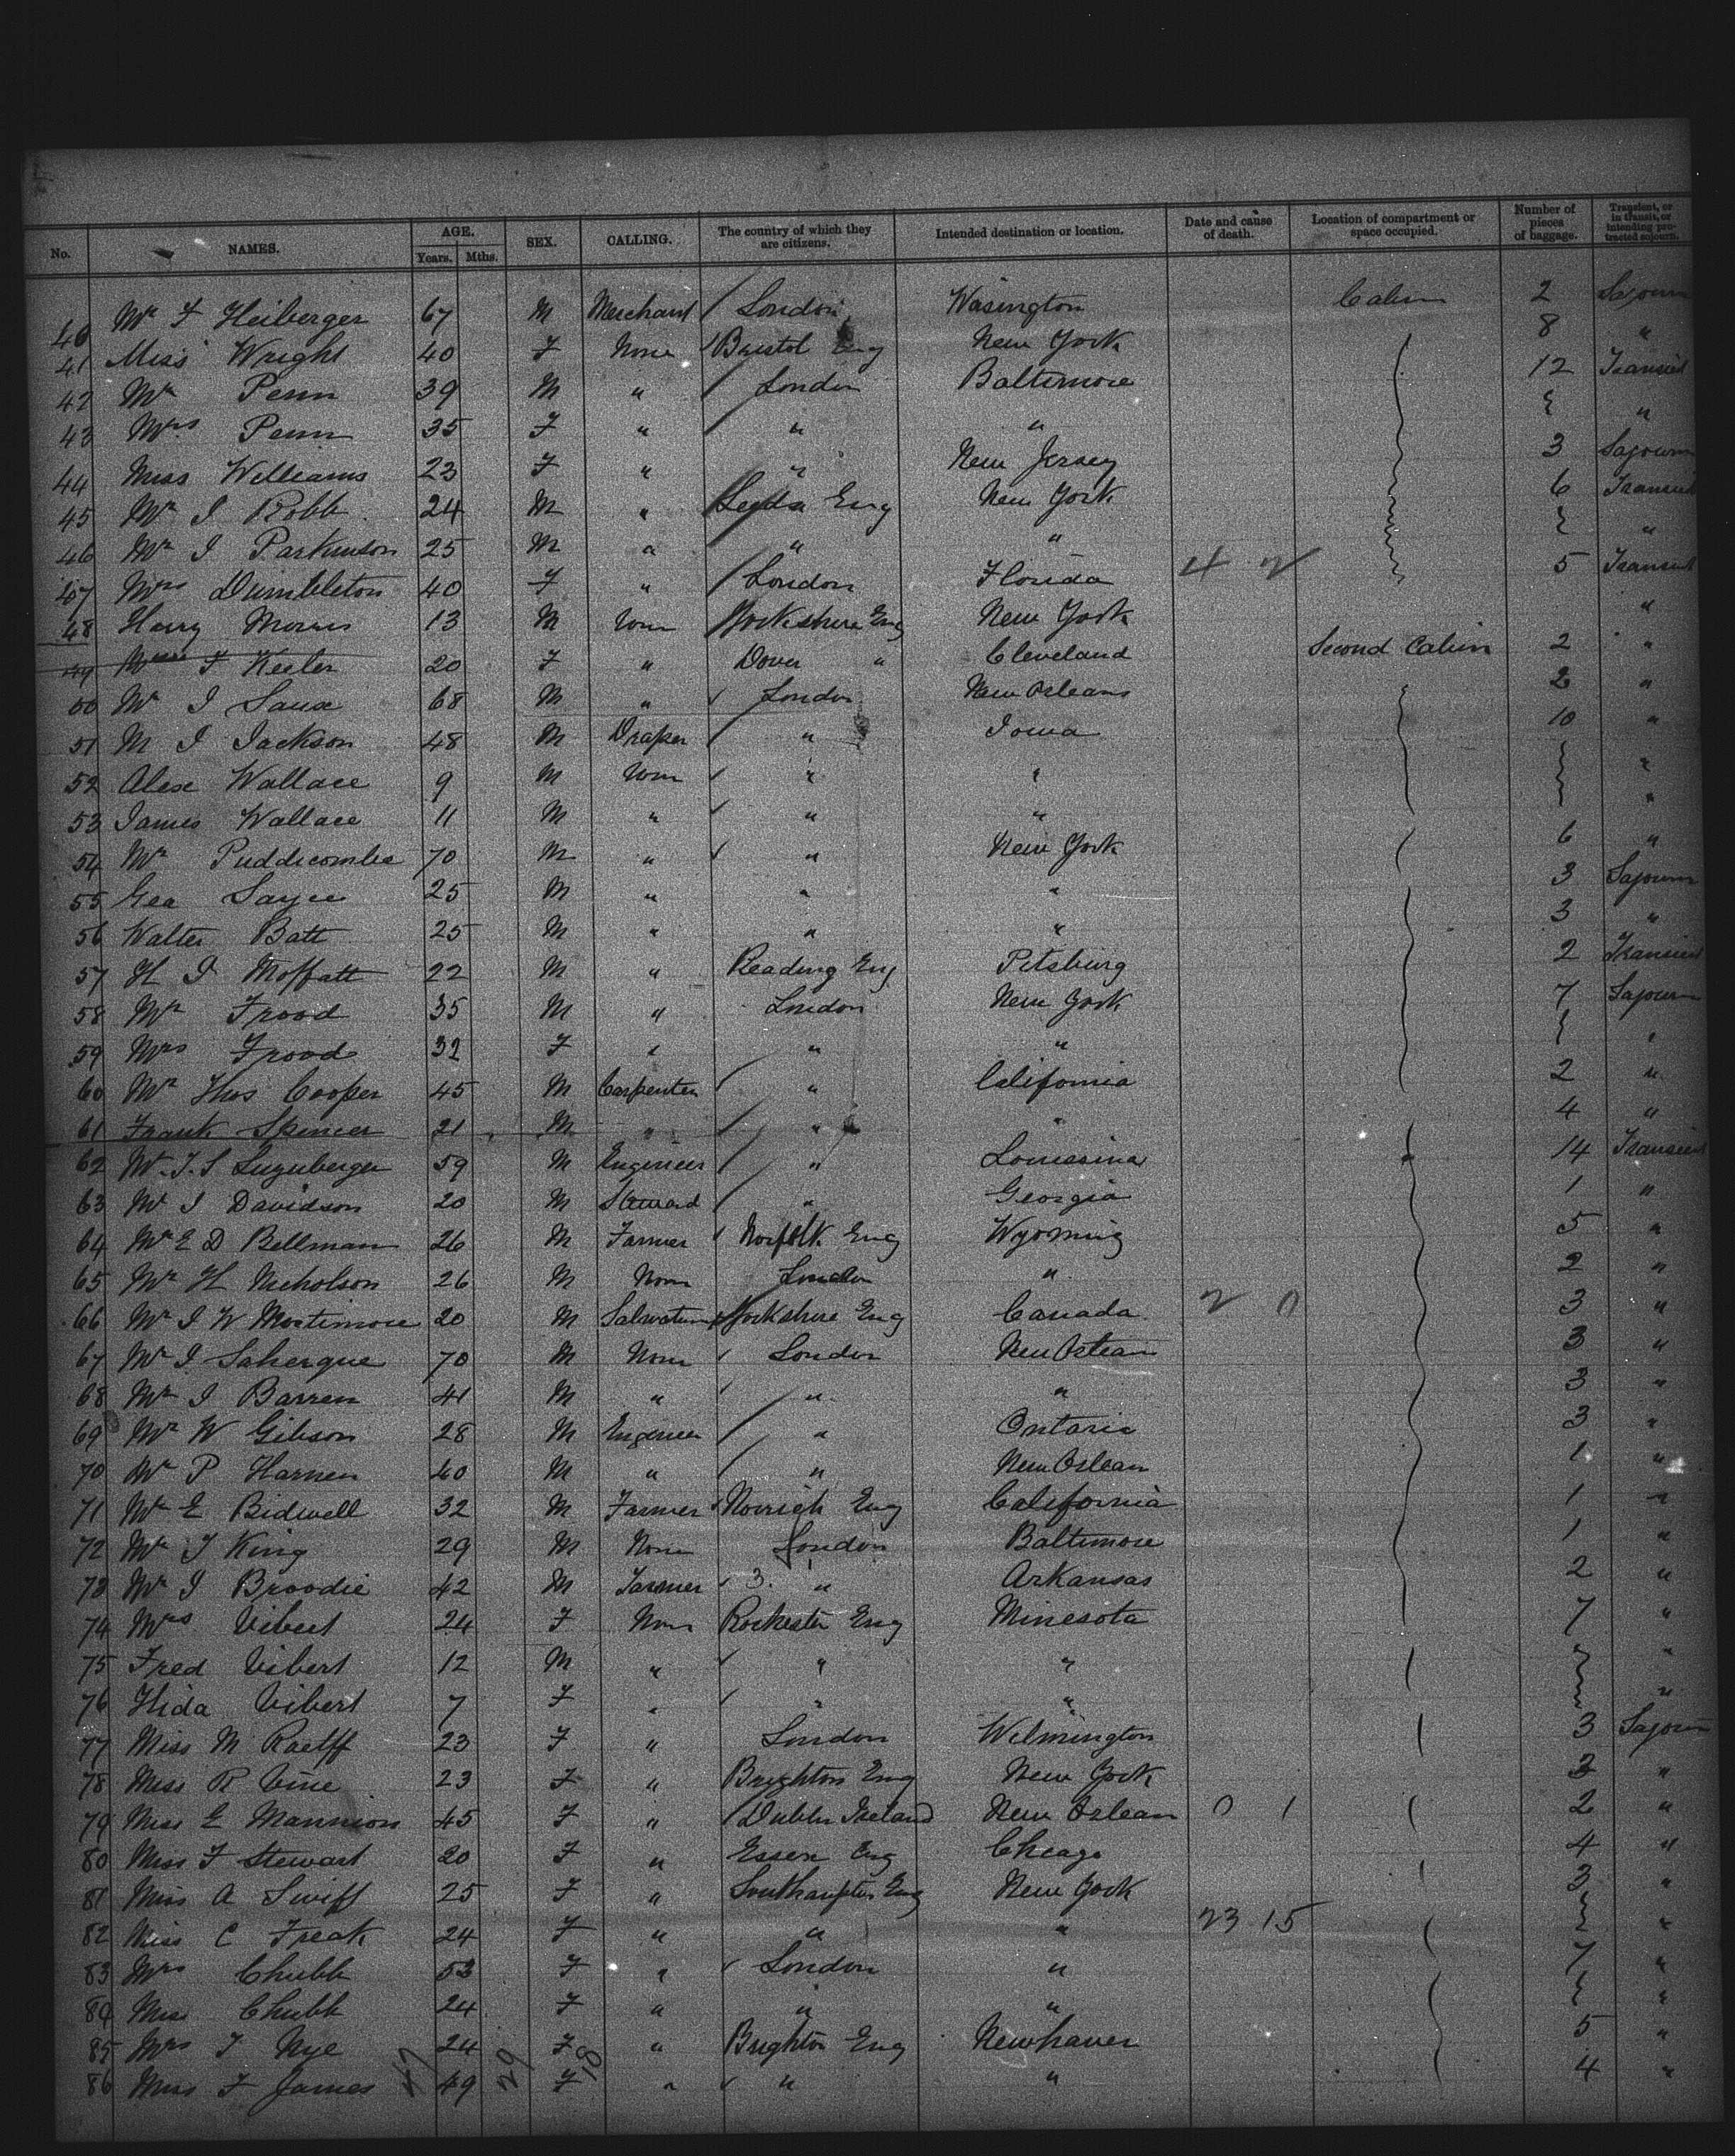 No. NAMES. AGE. Years. Mths. SEX. CALLING. The country of which they are citizens. Intended destination or location. Date and cause of death. Location of compartment or space occupied. Number of pieces of baggage. Transient, or in transit, or intending protracted sojourn.
40 Mr F Heiberger 67 M Merchant London Wasington Cabin 2 Sojourn
41 Miss Wright 40 F None Bristol Eng New York 8 "
42 Mr Penn 39 M " London Baltimore 12 Transient
43 Mrs Penn 35 F " " " "
44 Miss Williams 23 F " " New Jersey 3 Sojourn
45 Mr J Robb 24 M " Leeds Eng New York 6 Transient
46 Mr J Parkinson 25 M " " " "
47 Mrs Dumbleton 40 F " London Florida 4 2 5 Transient
48 Harry Morris 13 M None Yorkshire Eng New York "
49 F Keeler 20 F " Dover " Cleveland Second Cabin 2 "
50 Mr J Saux 68 M " London New Orleans 2 "
51 M J Jackson 48 M Draper " Iowa 10 "
52 Alex Wallace 9 M None " " "
53 James Wallace 11 M " " " "
54 Mr Puddicombe 70 M " " New York 6 "
55 Geo Sayce 25 M " " " 3 Sojourn
56 Walter Batt 25 M " " " 3 "
57 H J Moffatt 22 M " Reading Eng Pitsburg 2 Transient
58 Mr Frood 35 M " London New York 7 Sojourn
59 Mrs Frood 32 F " " " "
60 Mr Thos Cooper 45 M Carpenter " California 2 "
61 Frank Spencer 21 M " " " 4 "
62 M. J. S 59 M Engineer " Louissina 14 Transient
63 Mr J Davidson 20 M Steward " Georgia 1 "
64 Mr E D Bellman 26 M Farmer Norfolk Eng Wyoming 5 "
65 Mr H Nicholson 26 M None London " 2 "
66 Mr J W Mortimore 20 M Yorkshire Eng Canada 2 0 3 "
67 Mr J 70 M None London New Orlean 3 "
68 Mr J Barren 41 M " " " 3 "
69 Mr W Gibson 28 M Engineer " Ontario 3 "
70 Mr P Harnen 40 M " " New Orlean 1 "
71 Mr E Bidwell 32 M Farmer Norrich Eng California 1 "
72 Mr J King 29 M None London Baltimore 1 "
73 Mr J Broodie 42 M Farmer 3. " Arkansas 2 "
74 Mrs Vibert 24 F None Rochester Eng Minesota 7 "
75 Fred Vibert 12 M " " " "
76 Hida Vibert 7 F " " " "
77 Miss M Raelff 23 F " London Wilmington 3 Sojourn
78 Miss R Vine 23 F " Brighton Eng New York 3 "
79 Miss E Mannion 45 F " Dublin Ireland New Orlean 0 1 2 "
80 Miss F Stewart 20 F " Essex Eng Chcago 4 "
81 Miss A Swiff 25 F " Southampton Eng New York 3 "
82 Miss C Freak 24 F " " " 23 15 "
83 Mrs Chubb 53 F " London " 7 "
84 Miss Chubb 24 F " " " "
85 Mrs F Nye 24 F " Brighton Eng Newhaven 5 "
86 Miss F James 49 F " " " 4 "
47 29 18